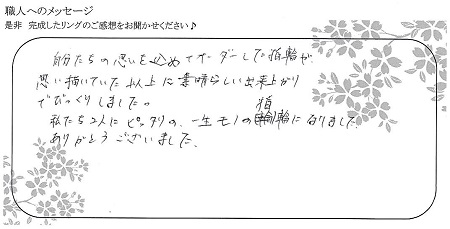 職人へのメッセージ
是非 完成したリングのご感想をお聞かせください♪
自分たちの思いを込めてオーダーした指輪が、
思い描いていた以上に素晴らしい出来上がり
でびっくりしました。
私たち2人にピッタリの、一生モノの指輪になりました。
ありがとうございました。